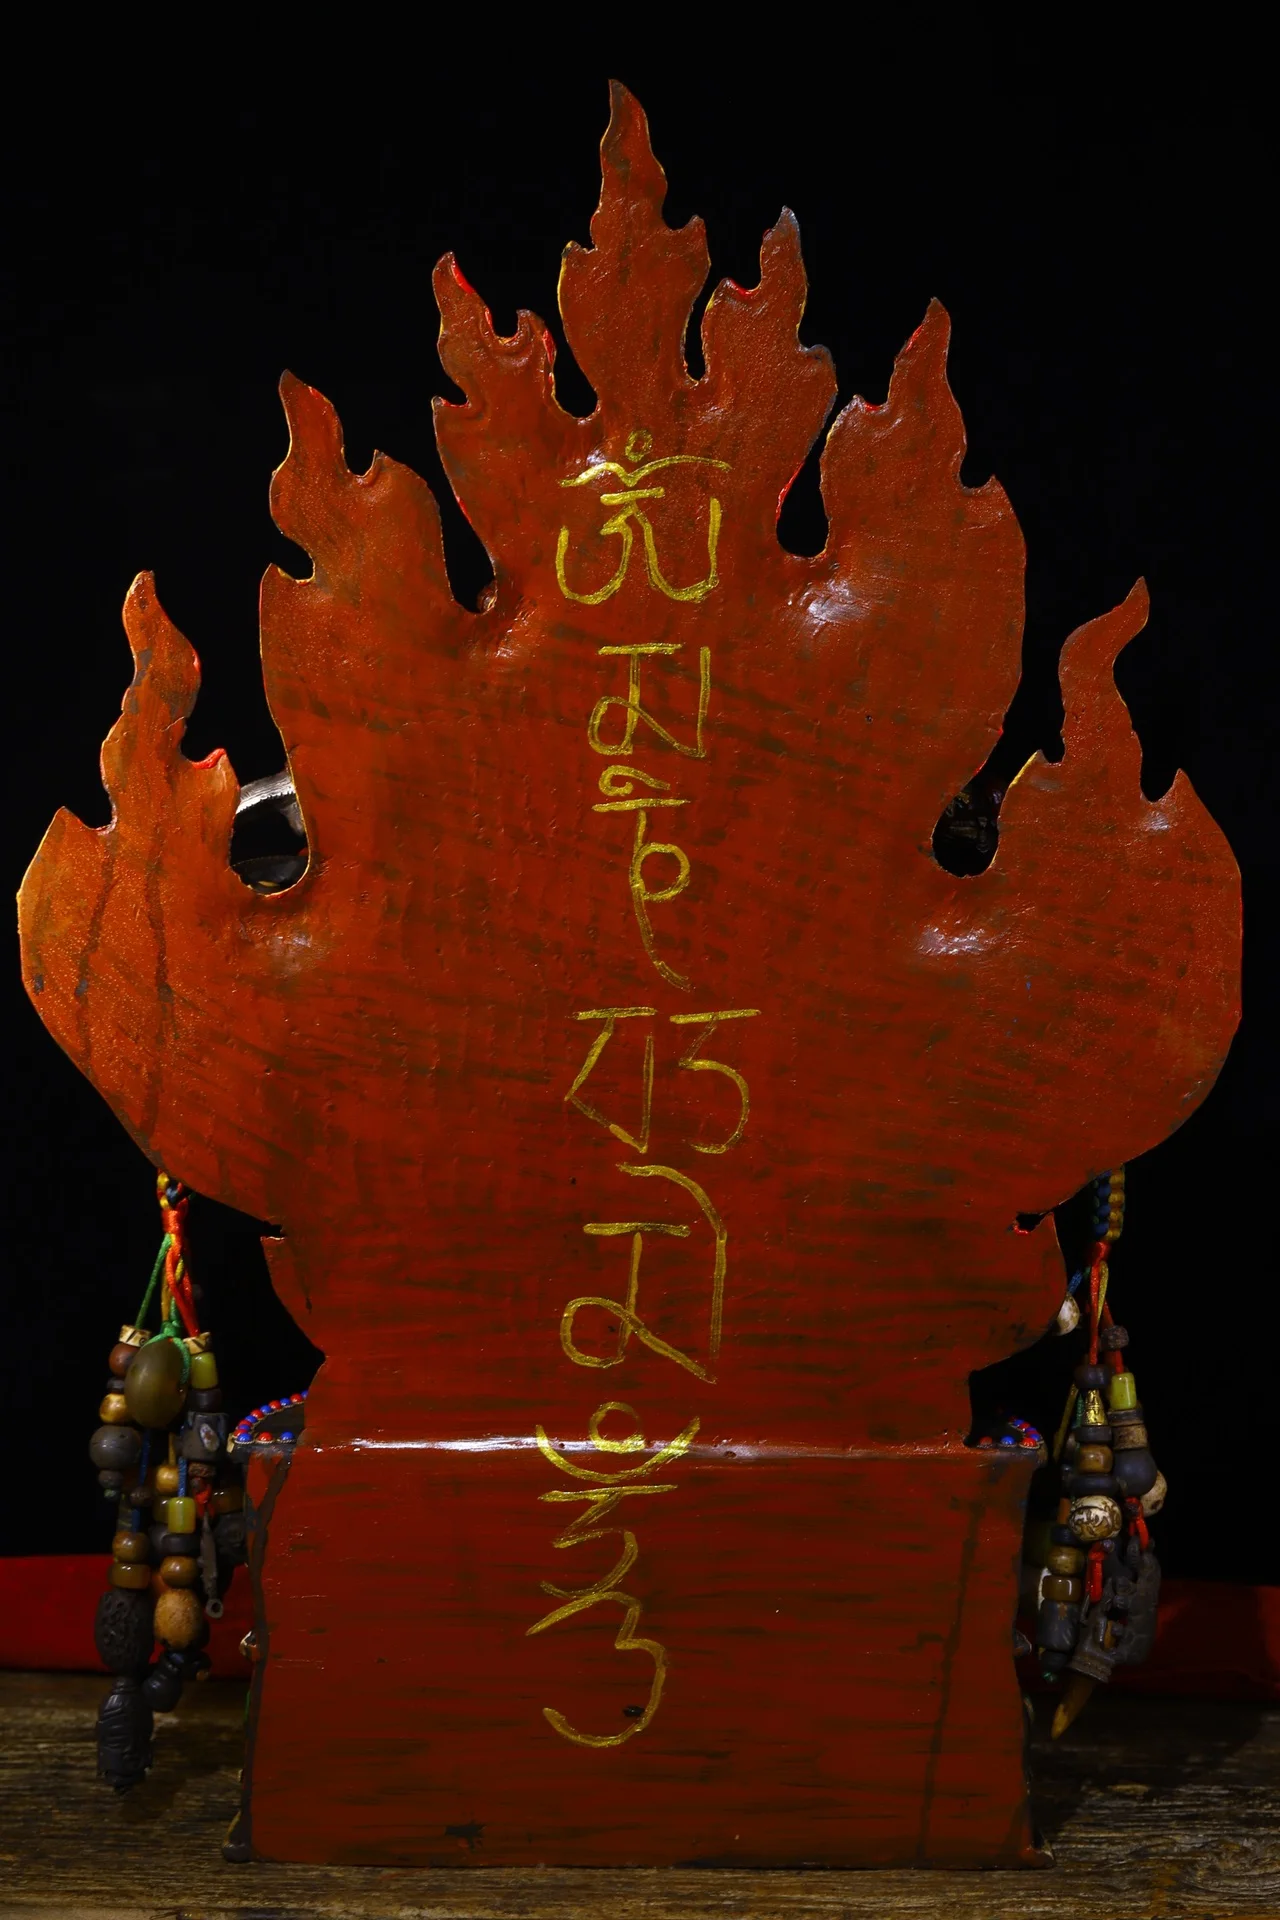 ཨོཾ མ ཎི པད མེ ཧཱུྃ